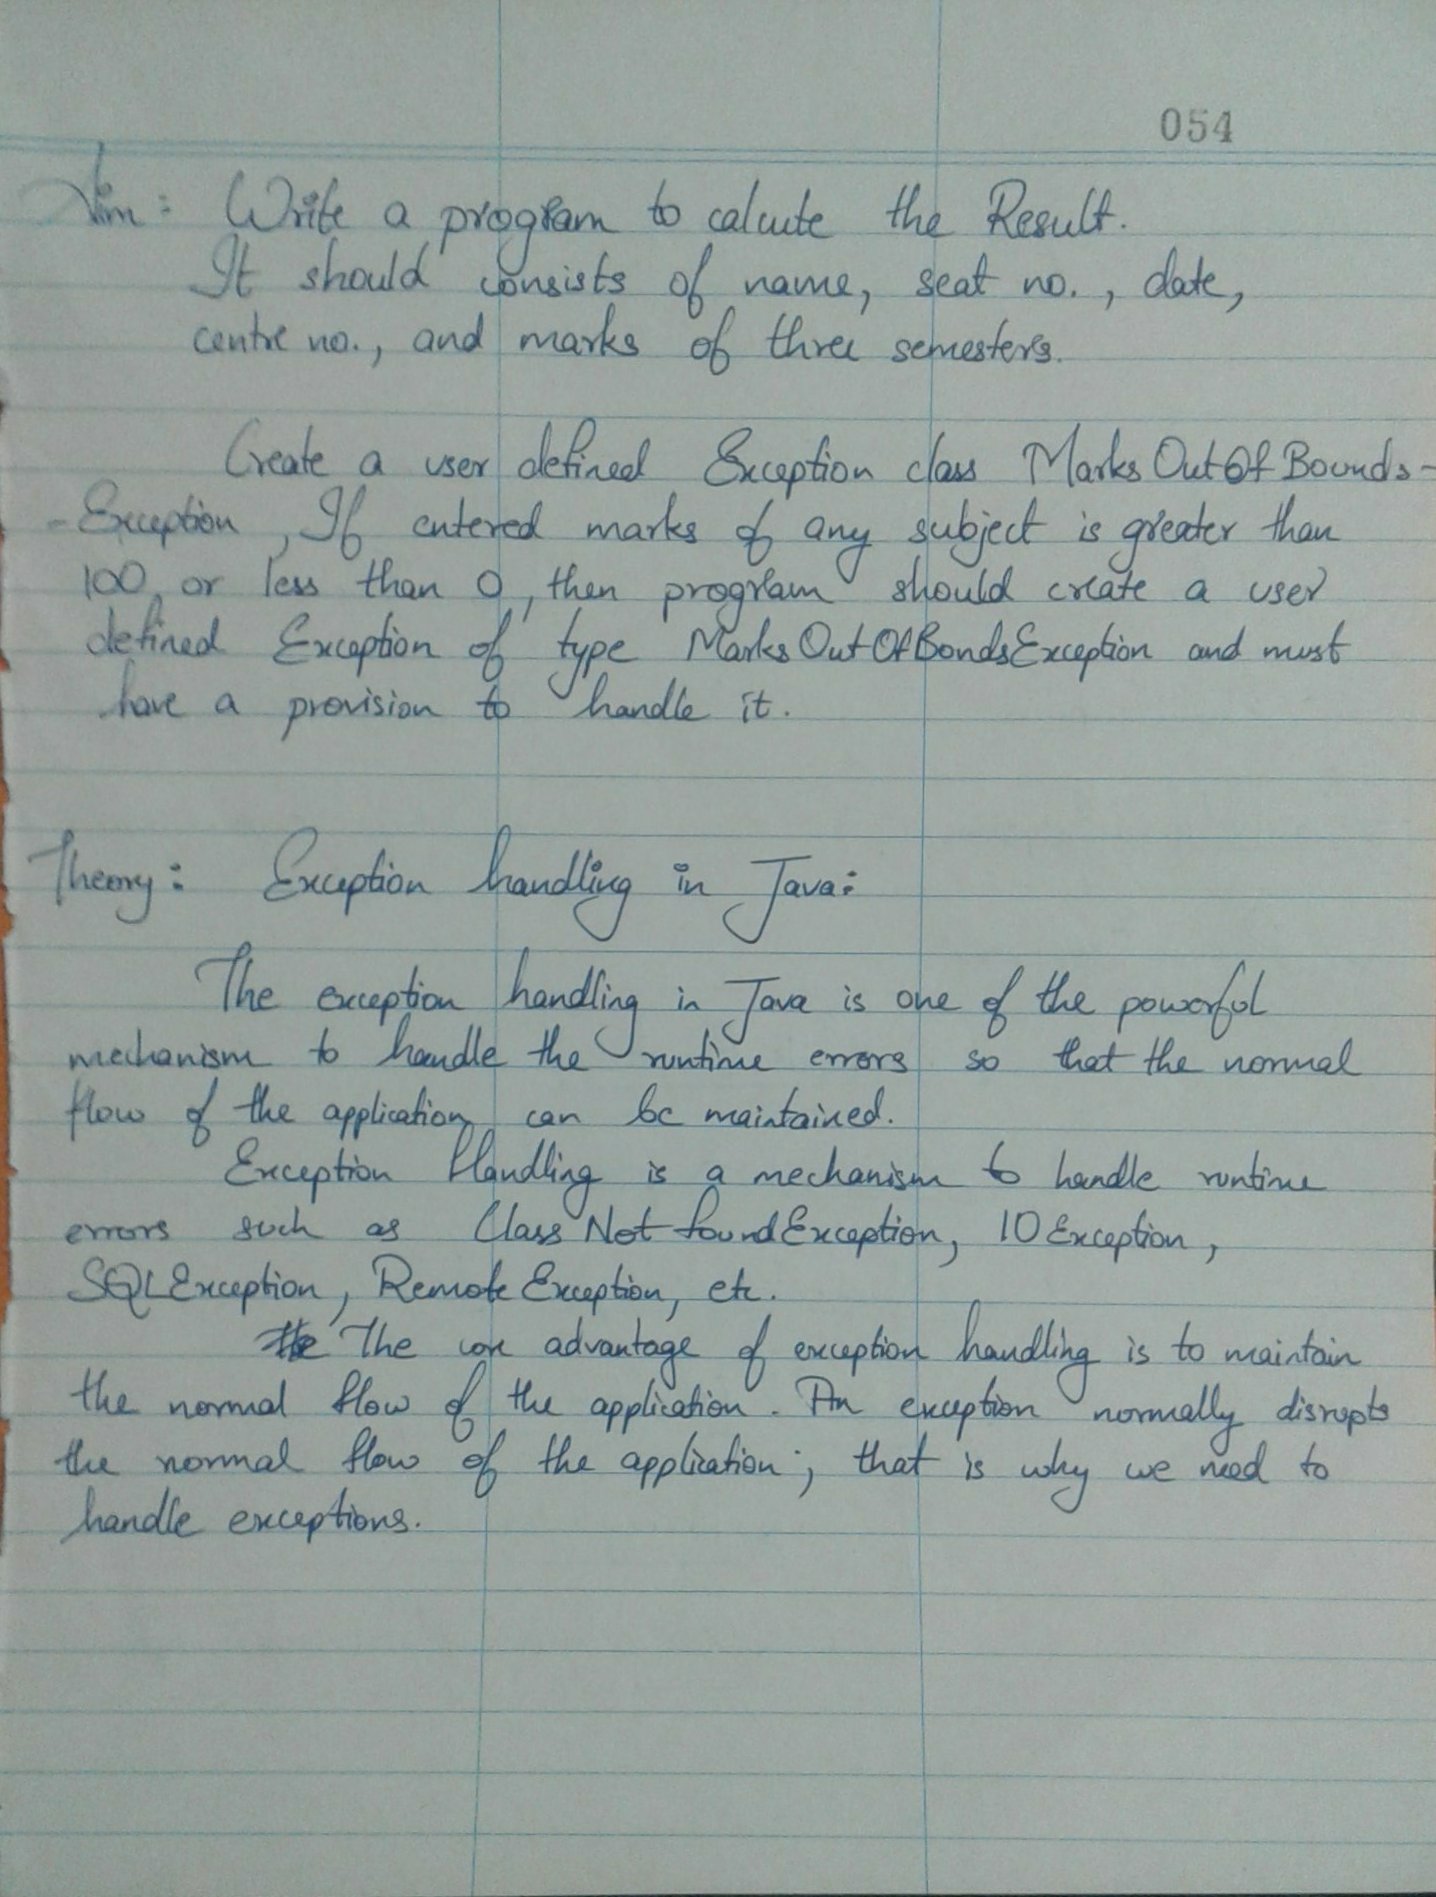 054
Aim: Write a program to calcute the Result.
It should consists of name, seat no., date,
centre no., and marks of three semesters.
Create a user defined Exception class MarksOutOfBounds-
-Exception, If entered marks of any subject is greater than
100, or less than 0, then program should create a user
defined Exception of type MarksOutOfBondsException and must
have a provision to handle it.
Theory: Exception handling in Java:
The exception handling in Java is one of the powerful
mechanism to handle the runtime errors so that the normal
flow of the application can be maintained.
Exception Handling is a mechanism to handle runtime
errors such as ClassNotfoundException, IOException,
SQLException, RemoteException, etc.
The core advantage of exception handling is to maintain
the normal flow of the application. An exception normally disrupts
the normal flow of the application; that is why we need to
handle exceptions.